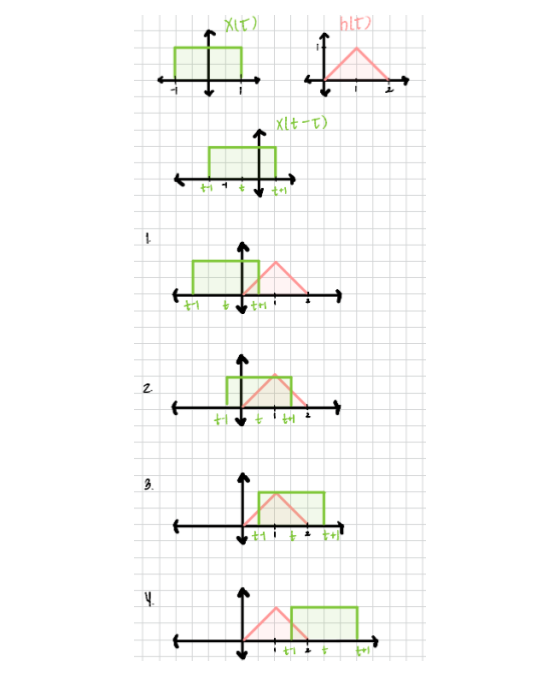 x(τ) h(τ)
1
-1 1 1 2
x(t-τ)
t-1 -1 t t+1
1.
t-1 t t+1 1 2
2.
t-1 t 1 t+1 2
3.
t-1 1 t 2 t+1
4.
1 t-1 2 t t+1